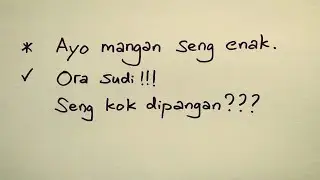 * Ayo mangan seng enak.
✓ Ora sudi!!!
Seng kok dipangan???